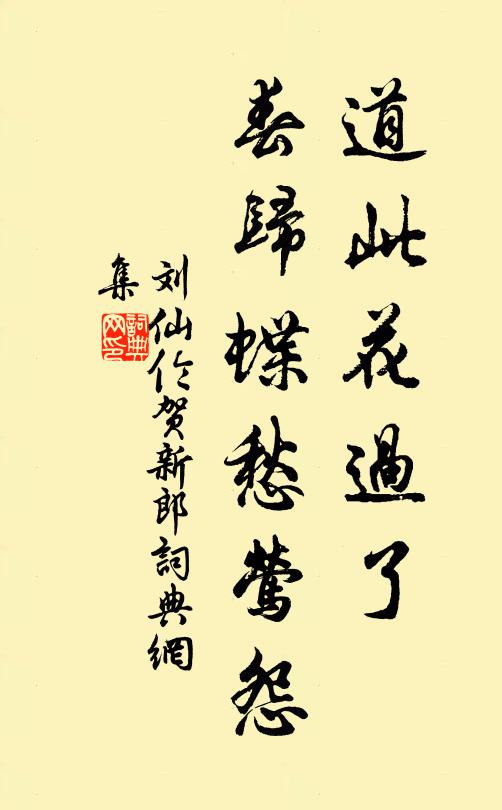 道此花過了
春歸蝶愁鶯怨
刘仙伦贺新郎詞典網
集
詞典
网印